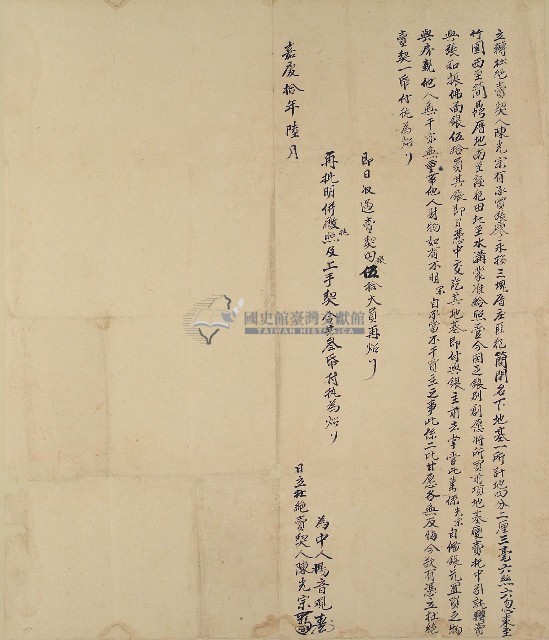 立轉杜絕賣契人陳光宗有承買張廖永接三塊厝庄旺犯簡開名下地基一所計地四分二厘三毫六絲六忽東至
竹圍西至簡厝地南至犯田北至水溝蒙准給照營今因乏銀別創愿將所買前項地基盡賣托中引就轉賣
與張和振佛面銀伍拾員其銀即日憑中交訖其地基即付與銀主前去掌管此業係光宗自備銀元置買之物
與房親他人無干亦無重典他人財物如有不明宗自承當不干買主之事此係二比甘愿各無反悔今欲有憑立杜絕
賣契一帋付执為炤
即日收過賣契內銀伍拾大員再炤
再批明併繳执照及上手契合共叁帋付执為炤
嘉慶拾年陸月
為中人馮音觀
日立杜絕賣契人陳光宗
國史館臺灣文獻館
TAIWAN HISTORICA